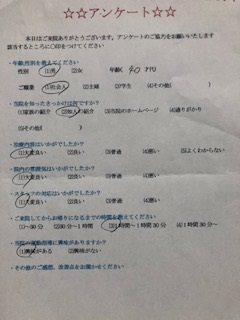 ☆☆アンケート☆☆
本日はご来院ありがとうございます。アンケートのご協力をお願いいたします
該当するところに○印をつけてください
・年齢,性別を教えてください
性別 (1)男 (2)女 年齢( 40 才代)
ご職業 (1)社会人 (2)主婦 (3)学生 (4)その他( )
・当院を知ったきっかけは何ですか?
(1)家族の紹介 (2)知人の紹介 (3)当院のホームページ (4)通りがかり
(5)その他( )
・治療内容はいかがでしたか?
(1)大変良い (2)良い (3)普通 (4)悪い (5)よくわからない
・院内の雰囲気はいかがでしたか?
(1)大変良い (2)良い (3)普通 (4)悪い
・スタッフの対応はいかがでしたか?
(1)大変良い (2)良い (3)普通 (4)悪い
・ご来院してからお帰りになるまでの時間を教えてください
(1)~30分 (2)30分~1時間 (3)1時間~1時間30分 (4)1時間30分~
・当院の に興味がありますか?
(1)興味がある (2)興味がない
・その他のご感想、改善点をお聞かせください